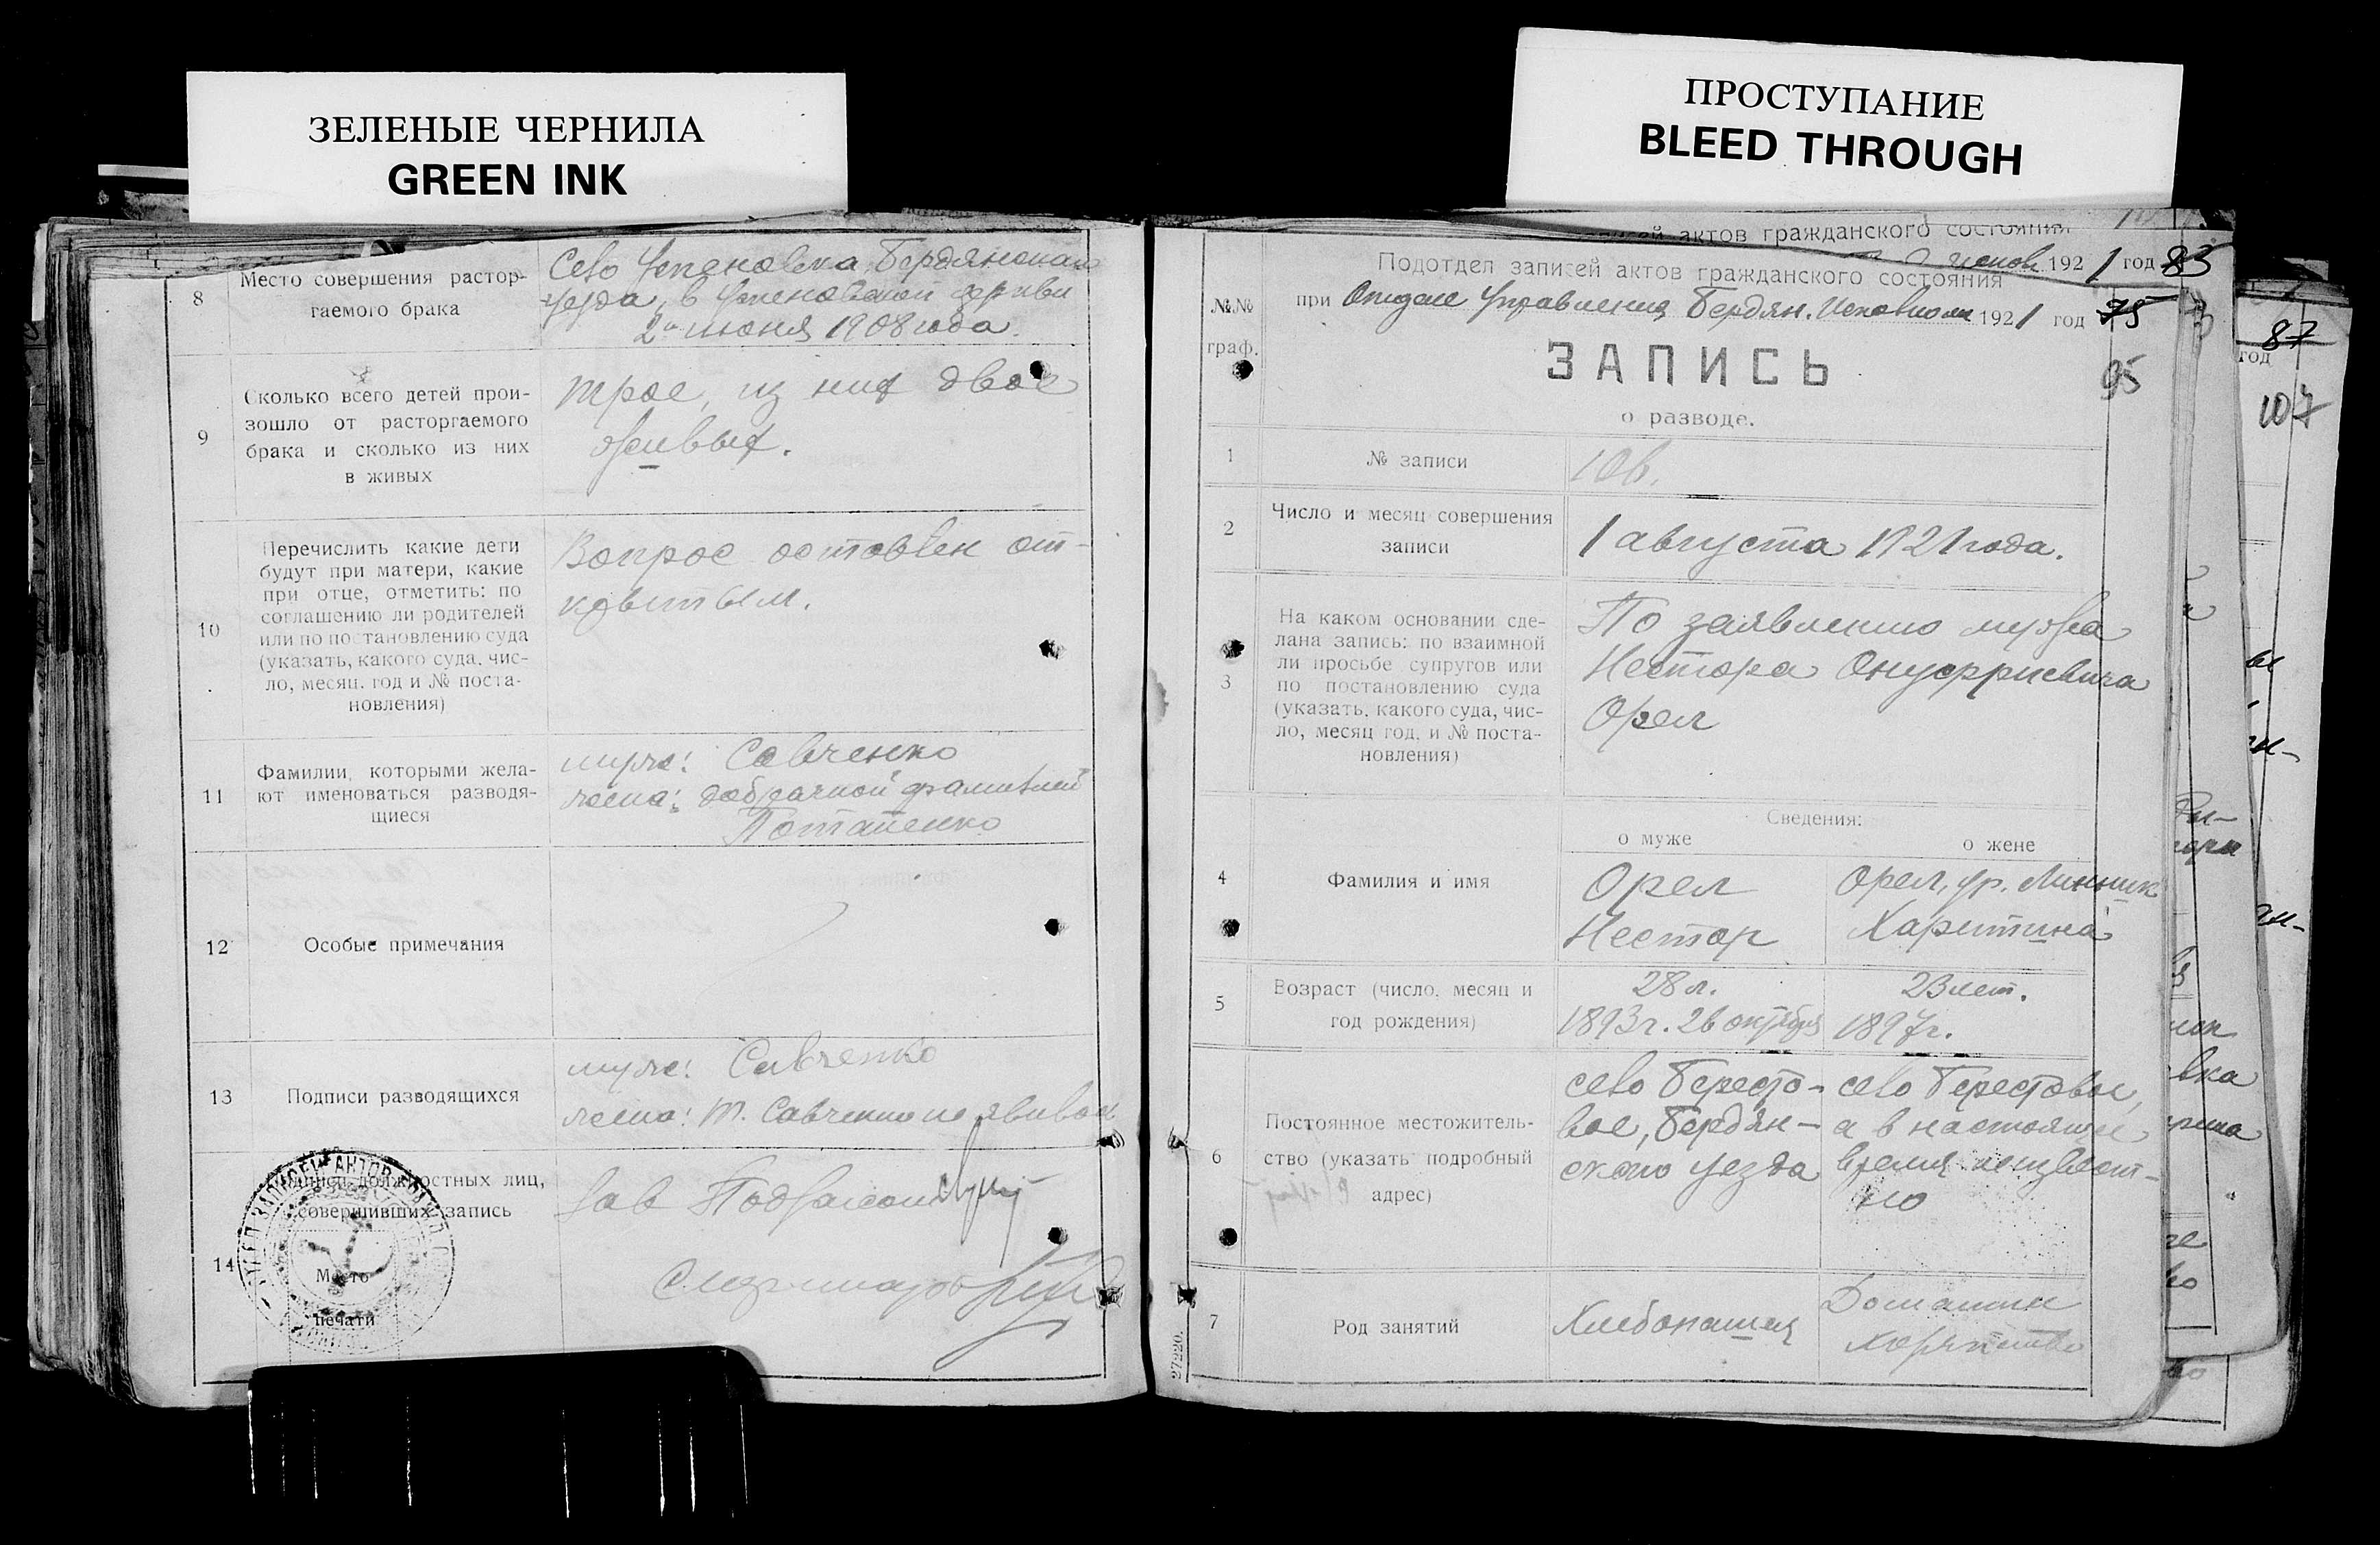 ЗЕЛЕНЫЕ ЧЕРНИЛА
GREEN INK
8
Место совершения растор-
гаемого брака
Село Успеновка, Бердянского
уезда, в Успеновской церкви
2го июня 1908 года.
9
Сколько всего детей прои-
зошло от расторгаемого
брака и сколько из них
в живых
трое, из них двое
живых.
10
Перечислить какие дети
будут при матери, какие
при отце, отметить: по
соглашению ли родителей
или по постановлению суда
(указать, какого суда, чис-
ло, месяц, год и № поста-
новления)
Вопрос оставлен от-
крытым.
11
Фамилии, которыми жела-
ют именоваться разводя-
щиеся
муж: Савченко
жена: добрачной фамилией
Потапенко
12
Особые примечания
13
Подписи разводящихся
муж: Савченко
жена: т. Савченко не явилась
14
Подписи должностных лиц,
совершивших запись
Зав
Место
печати
ПРОСТУПАНИЕ
BLEED THROUGH
записей актов гражданского состояния
1921 год 83
Подотдел записей актов гражданского состояния
при Отделе Управления Бердян. Исполкома 1921 год 75
95
№№
граф.
ЗАПИСЬ
о разводе.
1
№ записи
106.
2
Число и месяц совершения
записи
1 августа 1921 года.
3
На каком основании сде-
лана запись: по взаимной
ли просьбе супругов или
по постановлению суда
(указать, какого суда, чис-
ло, месяц, год, и № поста-
новления)
По заявлению мужа
Нестора Онуфриевича
Орел
Сведения:
о муже
о жене
4
Фамилия и имя
Орел
Нестор
Орел, ур. Линник
Харитина
5
Возраст (число, месяц и
год рождения)
28 л.
1893 г. 26 октября
23 лет.
1897 г.
6
Постоянное местожитель-
ство (указать подробный
адрес)
село Бересто-
вое, Бердян-
ского уезда
село Берестовое,
а в настоящее
время неизвест-
но
7
Род занятий
Хлебопашец
Домашнее
хозяйство
27220.
87
год
107